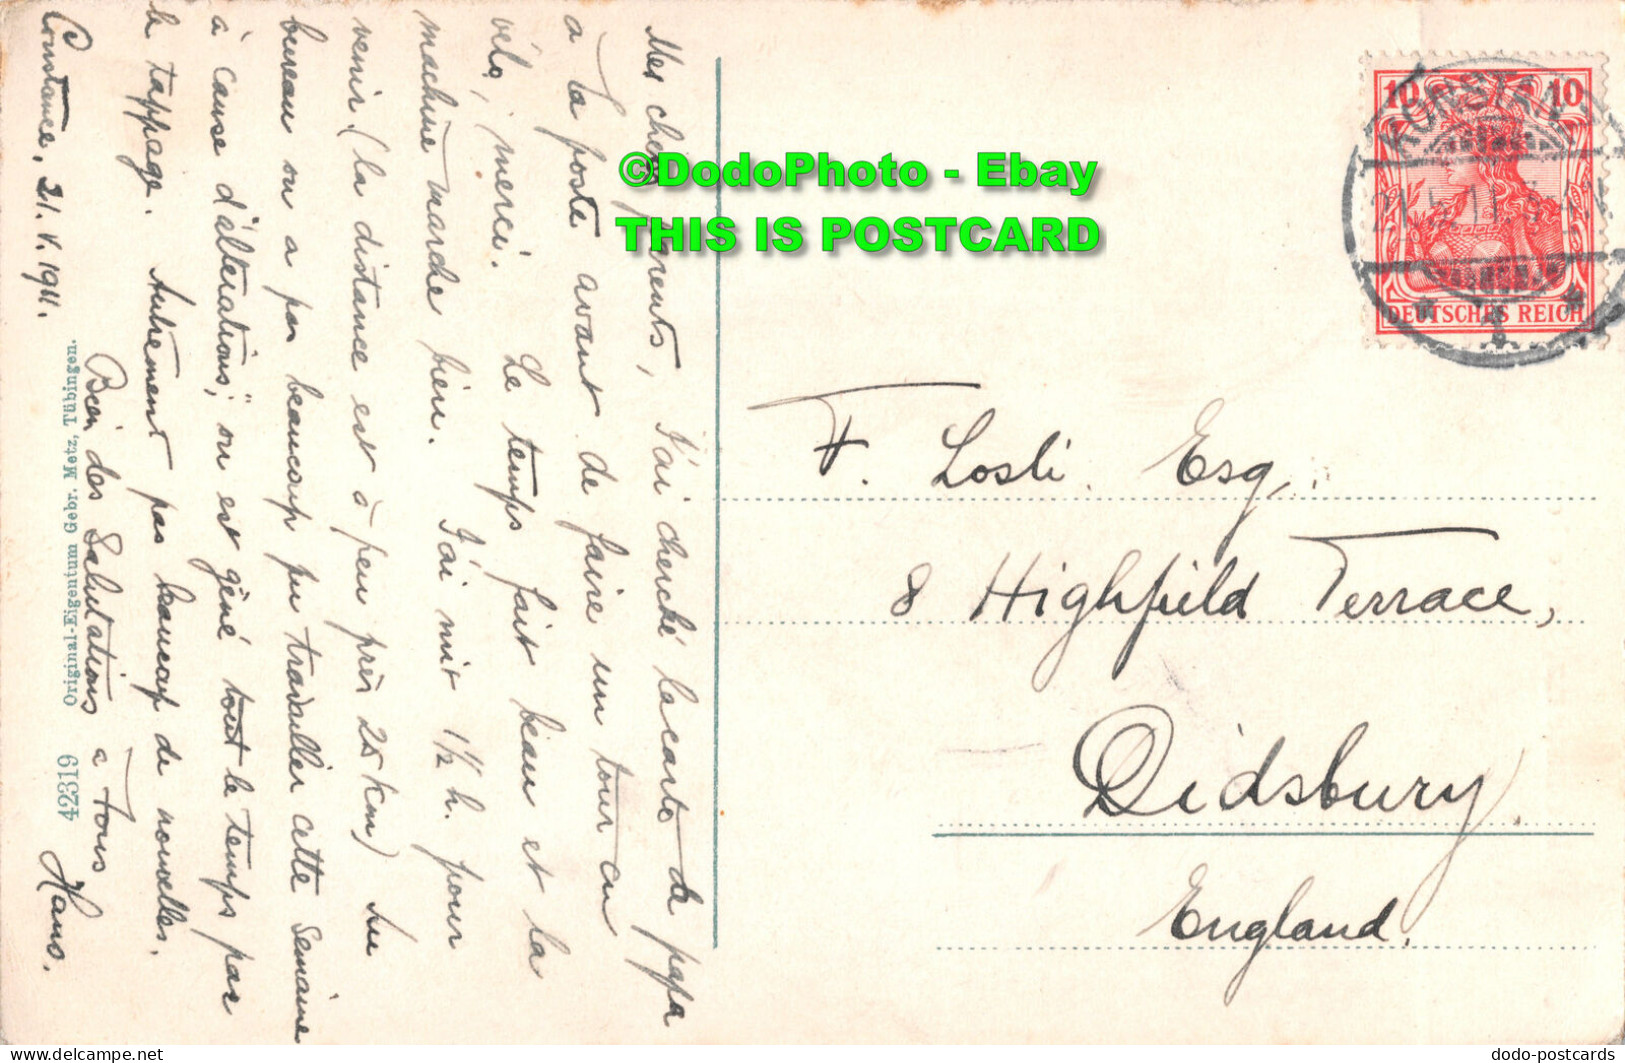 Mes chers parents, J'ai cherché la carte de papa
a la poste avant de faire un tour en
vélo, merci. Le temps fait beau et la
machine marche bien. J'ai mit 1½ h. pour
venir (la distance est à peu près 25 km) Au
bureau on a pas beaucoup pu travailler cette semaine
à cause d'altérations; on est géné tout le temps par
le tappage. Autrement pas beaucoup de nouvelles.
Bien des Salutations a tous
Constance, 21. V. 1911. Hans.
Original-Eigentum Gebr. Metz, Tübingen.
42319
©DodoPhoto - Ebay
THIS IS POSTCARD
10 10
DEUTSCHES REICH
KONSTANZ
21.5.11.
1
F. Losli Esq.
8 Highfield Terrace,
Didsbury.
England.
delcampe.net
dodo-postcards